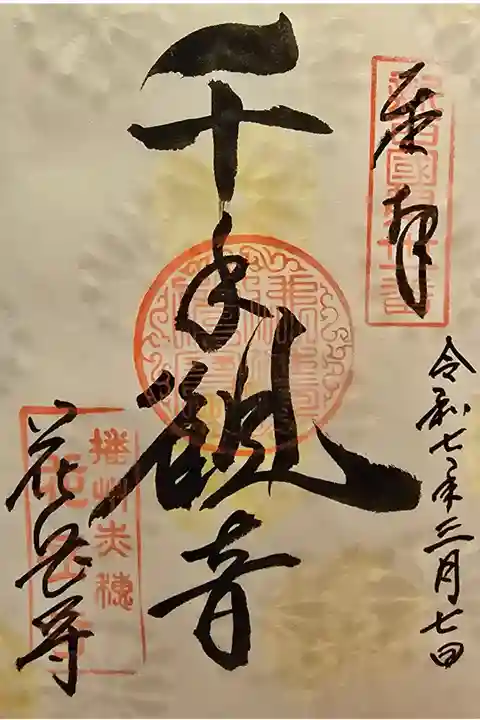 奉拝
令和七年三月七日
千手観音
花岳寺
播州赤穂
花岳寺